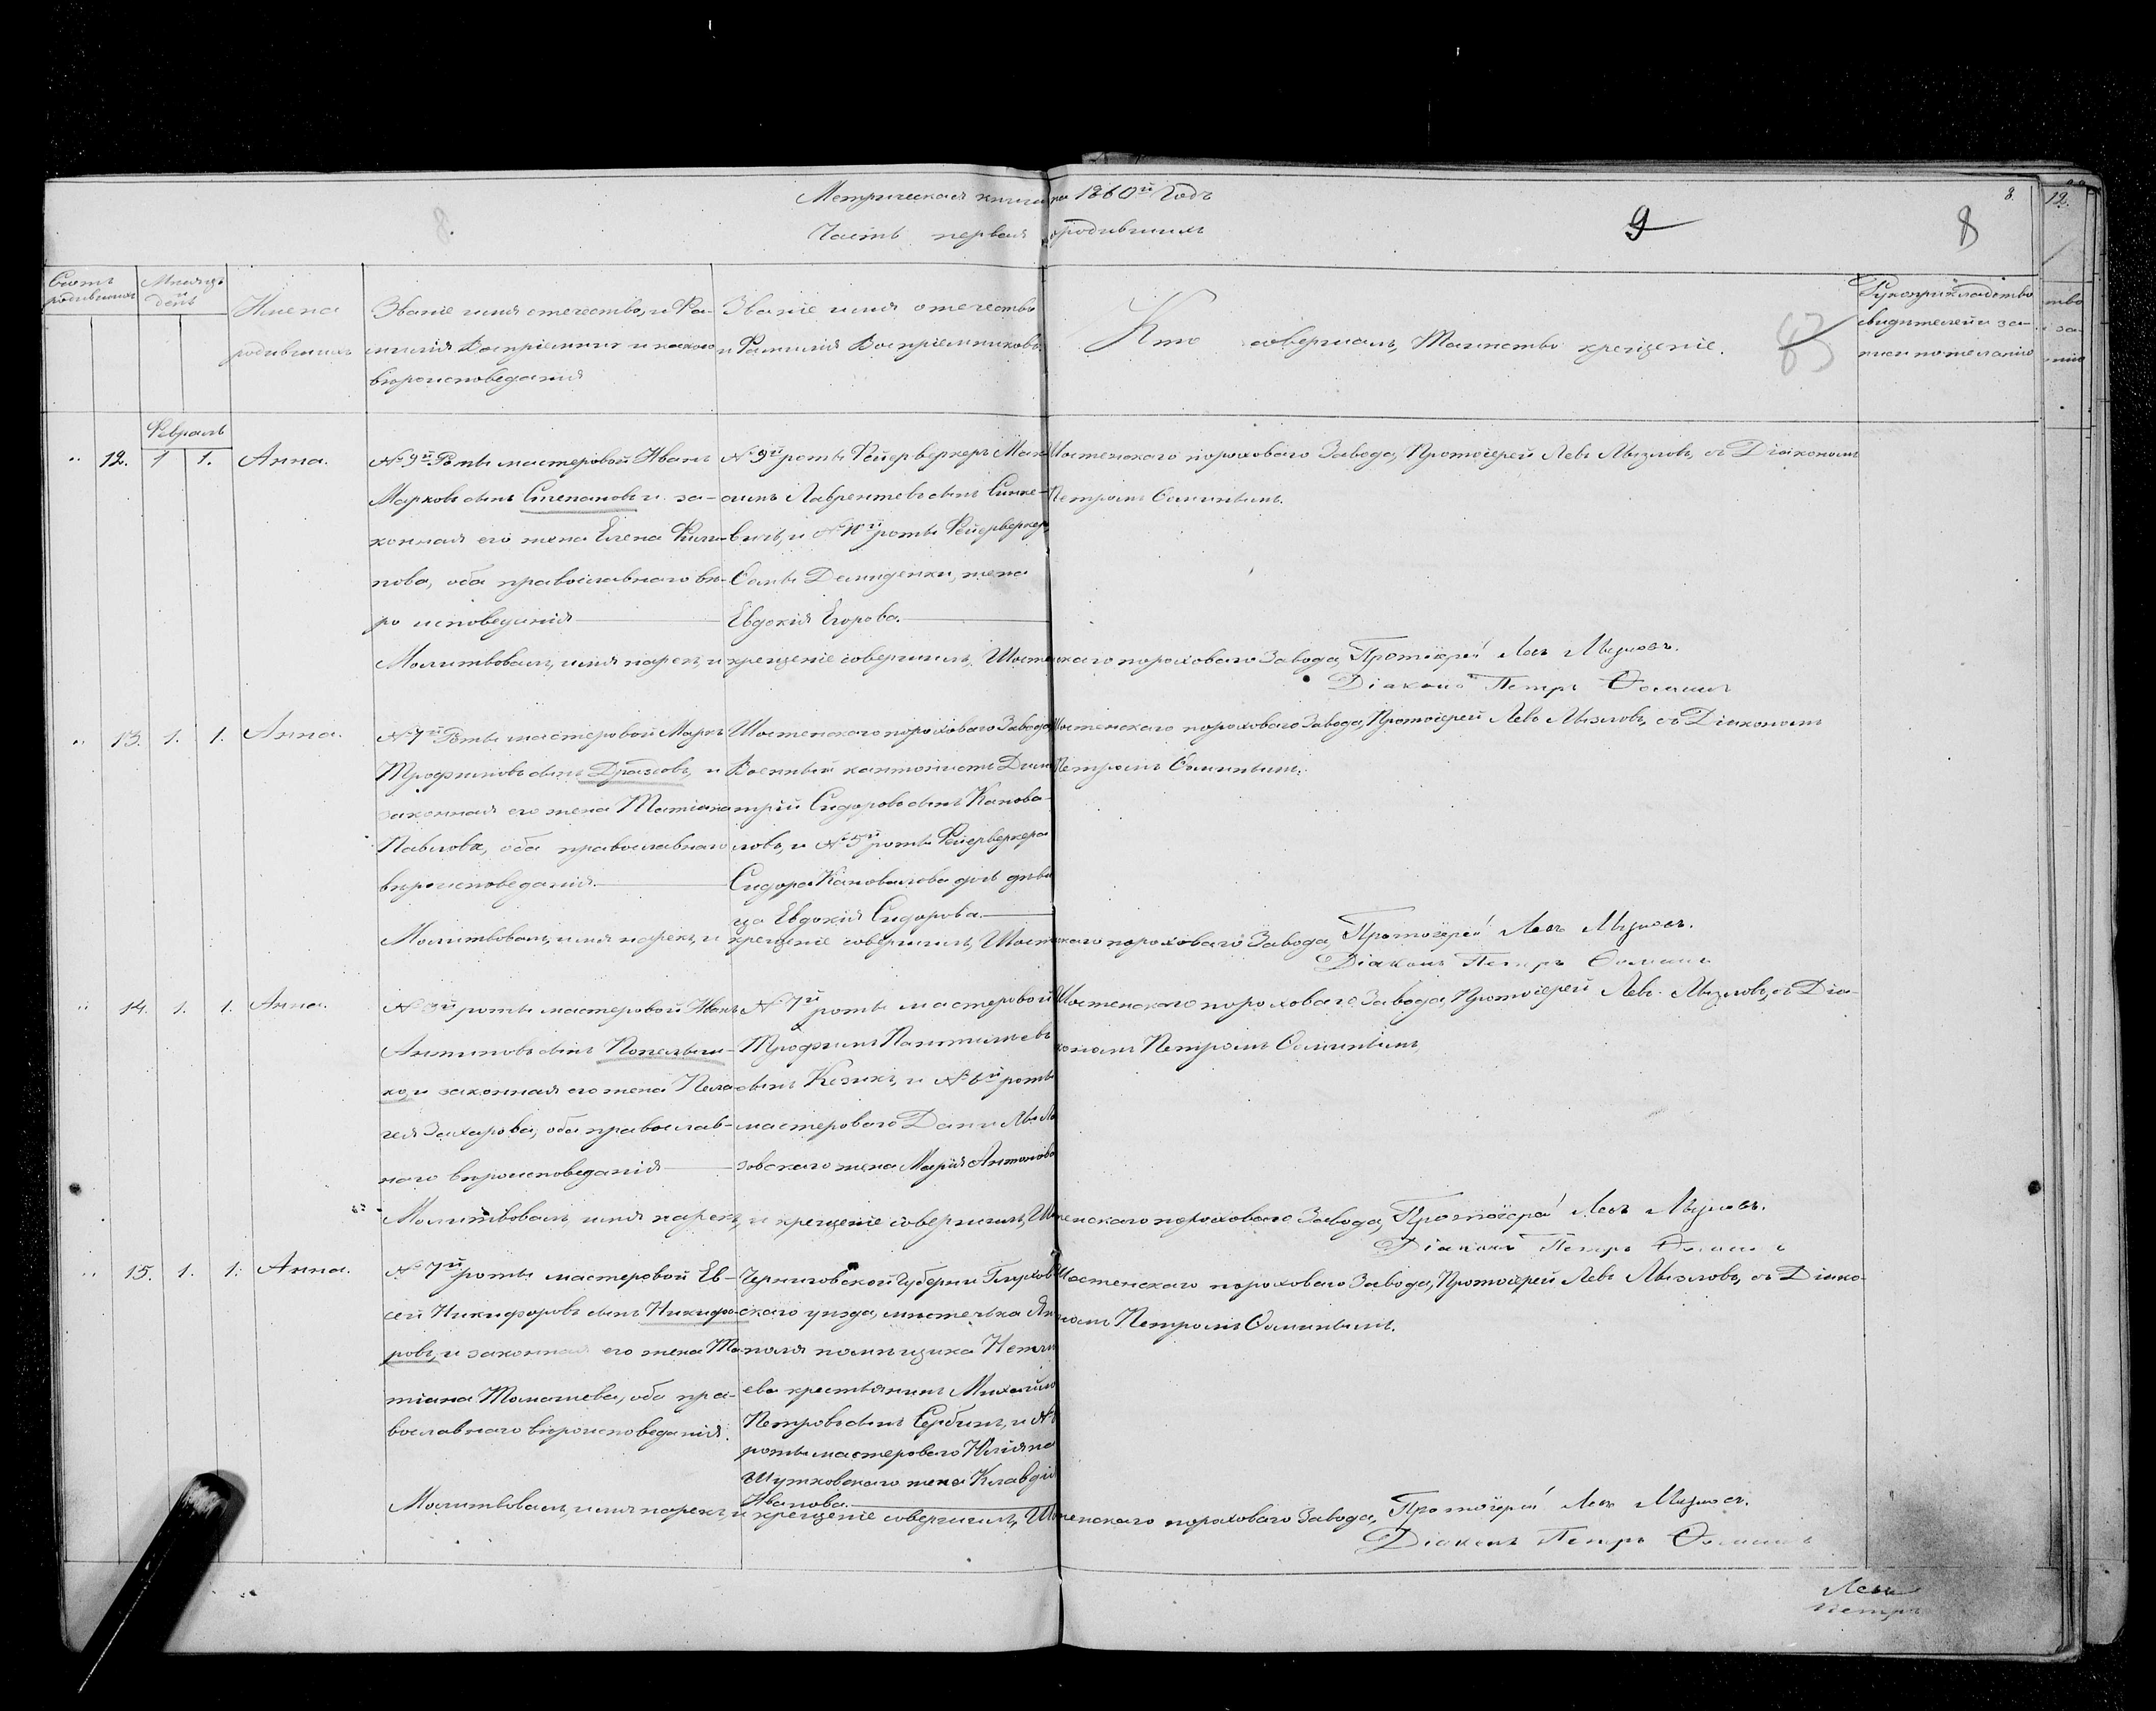 Метрическая книга на 1860й Годъ
Часть первая о родившихъ
8.
9
8
8
12.
Счетъ родившихся
Мѣсяцъ и день
Имена родившихъ
Званіе имя отечество, и Фа-
милія Воспріемник и какого
вѣроисповеданія
Званіе имя отечество
и Фамилія Воспріемниковъ.
Кто совершалъ, Таинство крещеніе.
Рукоприкладство
свидетелей и за-
писи по желанію
Февраль
12. 1 1. Анна.
№ 9й Роты мастеровой Иванъ
Марковъ сынъ Степановъ и за-
конная его жена Елена Филип-
пова, оба православнаго вѣ-
ро исповеданія
№ 9й роты Фейерверкеръ Мак
симъ Лаврентьевъ сынъ
и № роты Фейерверкера
Демиденки, жена
Евдокія Егорова.
Шостенскаго пороховаго Завода, Протоіерей Левъ Мызловъ, съ Діакономъ
Петромъ Ѳоминымъ.
Молитвовалъ, имя нарекъ, и крещеніе совершилъ, Шостенскаго пороховаго Завода, Протоіерей Левъ Мызловъ.
Діаконъ Петръ Ѳоминъ
13. 1. 1. Анна.
№ 7й Роты мастеровой Маркъ
Трофимовъ сынъ и
законная его жена Татіана
Павлова, оба православнаго
вѣроисповеданія.
Шостенскаго пороховаго Завода,
Военный кантонистъ Дими
трій Сидоровъ сынъ Канова-
ловъ, и № 5й роты Фейерверкера
Сидора Кановалова дочь дѣви
ца Евдокія Сидорова.
Шостенскаго пороховаго Завода, Протоіерей Левъ Мызловъ, съ Діакономъ
Петромъ Ѳоминымъ.
Молитвовалъ, имя нарекъ, и крещеніе совершилъ, Шостенскаго пороховаго Завода, Протоіерей Левъ Мызловъ.
Діаконъ Петръ Ѳоминъ
14. 1. 1. Анна.
роты мастеровой Иванъ
Антиповъ сынъ
ко, и законная его жена Пела
гея Захарова, оба православ-
наго вѣроисповеданія
№ 7й роты мастеровой
Трофимъ Пантилѣевъ
сынъ и № 6й роты
мастероваго
жена Марія Антонова
Шостенскаго пороховаго Завода, Протоіерей Левъ Мызловъ, съ Діа-
кономъ Петромъ Ѳоминымъ.
Молитвовалъ, имя нарекъ, и крещеніе совершилъ, Шостенскаго пороховаго Завода, Протоіерей Левъ Мызловъ.
Діаконъ Петръ Ѳоминъ
15. 1. 1. Анна.
№ 7й роты мастеровой Ев-
сей Никифоровъ сынъ Никифо-
ровъ, и законная его жена Та-
тіана Томашева, оба пра-
вославнаго вѣроисповеданія.
Черниговской Губерни Глухов
скаго уѣзда, мѣстечька Ям
поля помѣщика
ева крестьянинъ Михайло
Петровъ сынъ Сербинъ, и №
роты мастероваго
Шутковскаго жена Клавдія
Иванова.
Шостенскаго пороховаго Завода, Протоіерей Левъ Мызловъ, съ Діако-
номъ Петромъ Ѳоминымъ.
Молитвовалъ, имя нарекъ, и крещеніе совершилъ, Шостенскаго пороховаго Завода, Протоіерей Левъ Мызловъ.
Діаконъ Петръ Ѳоминъ
Левъ
Петръ